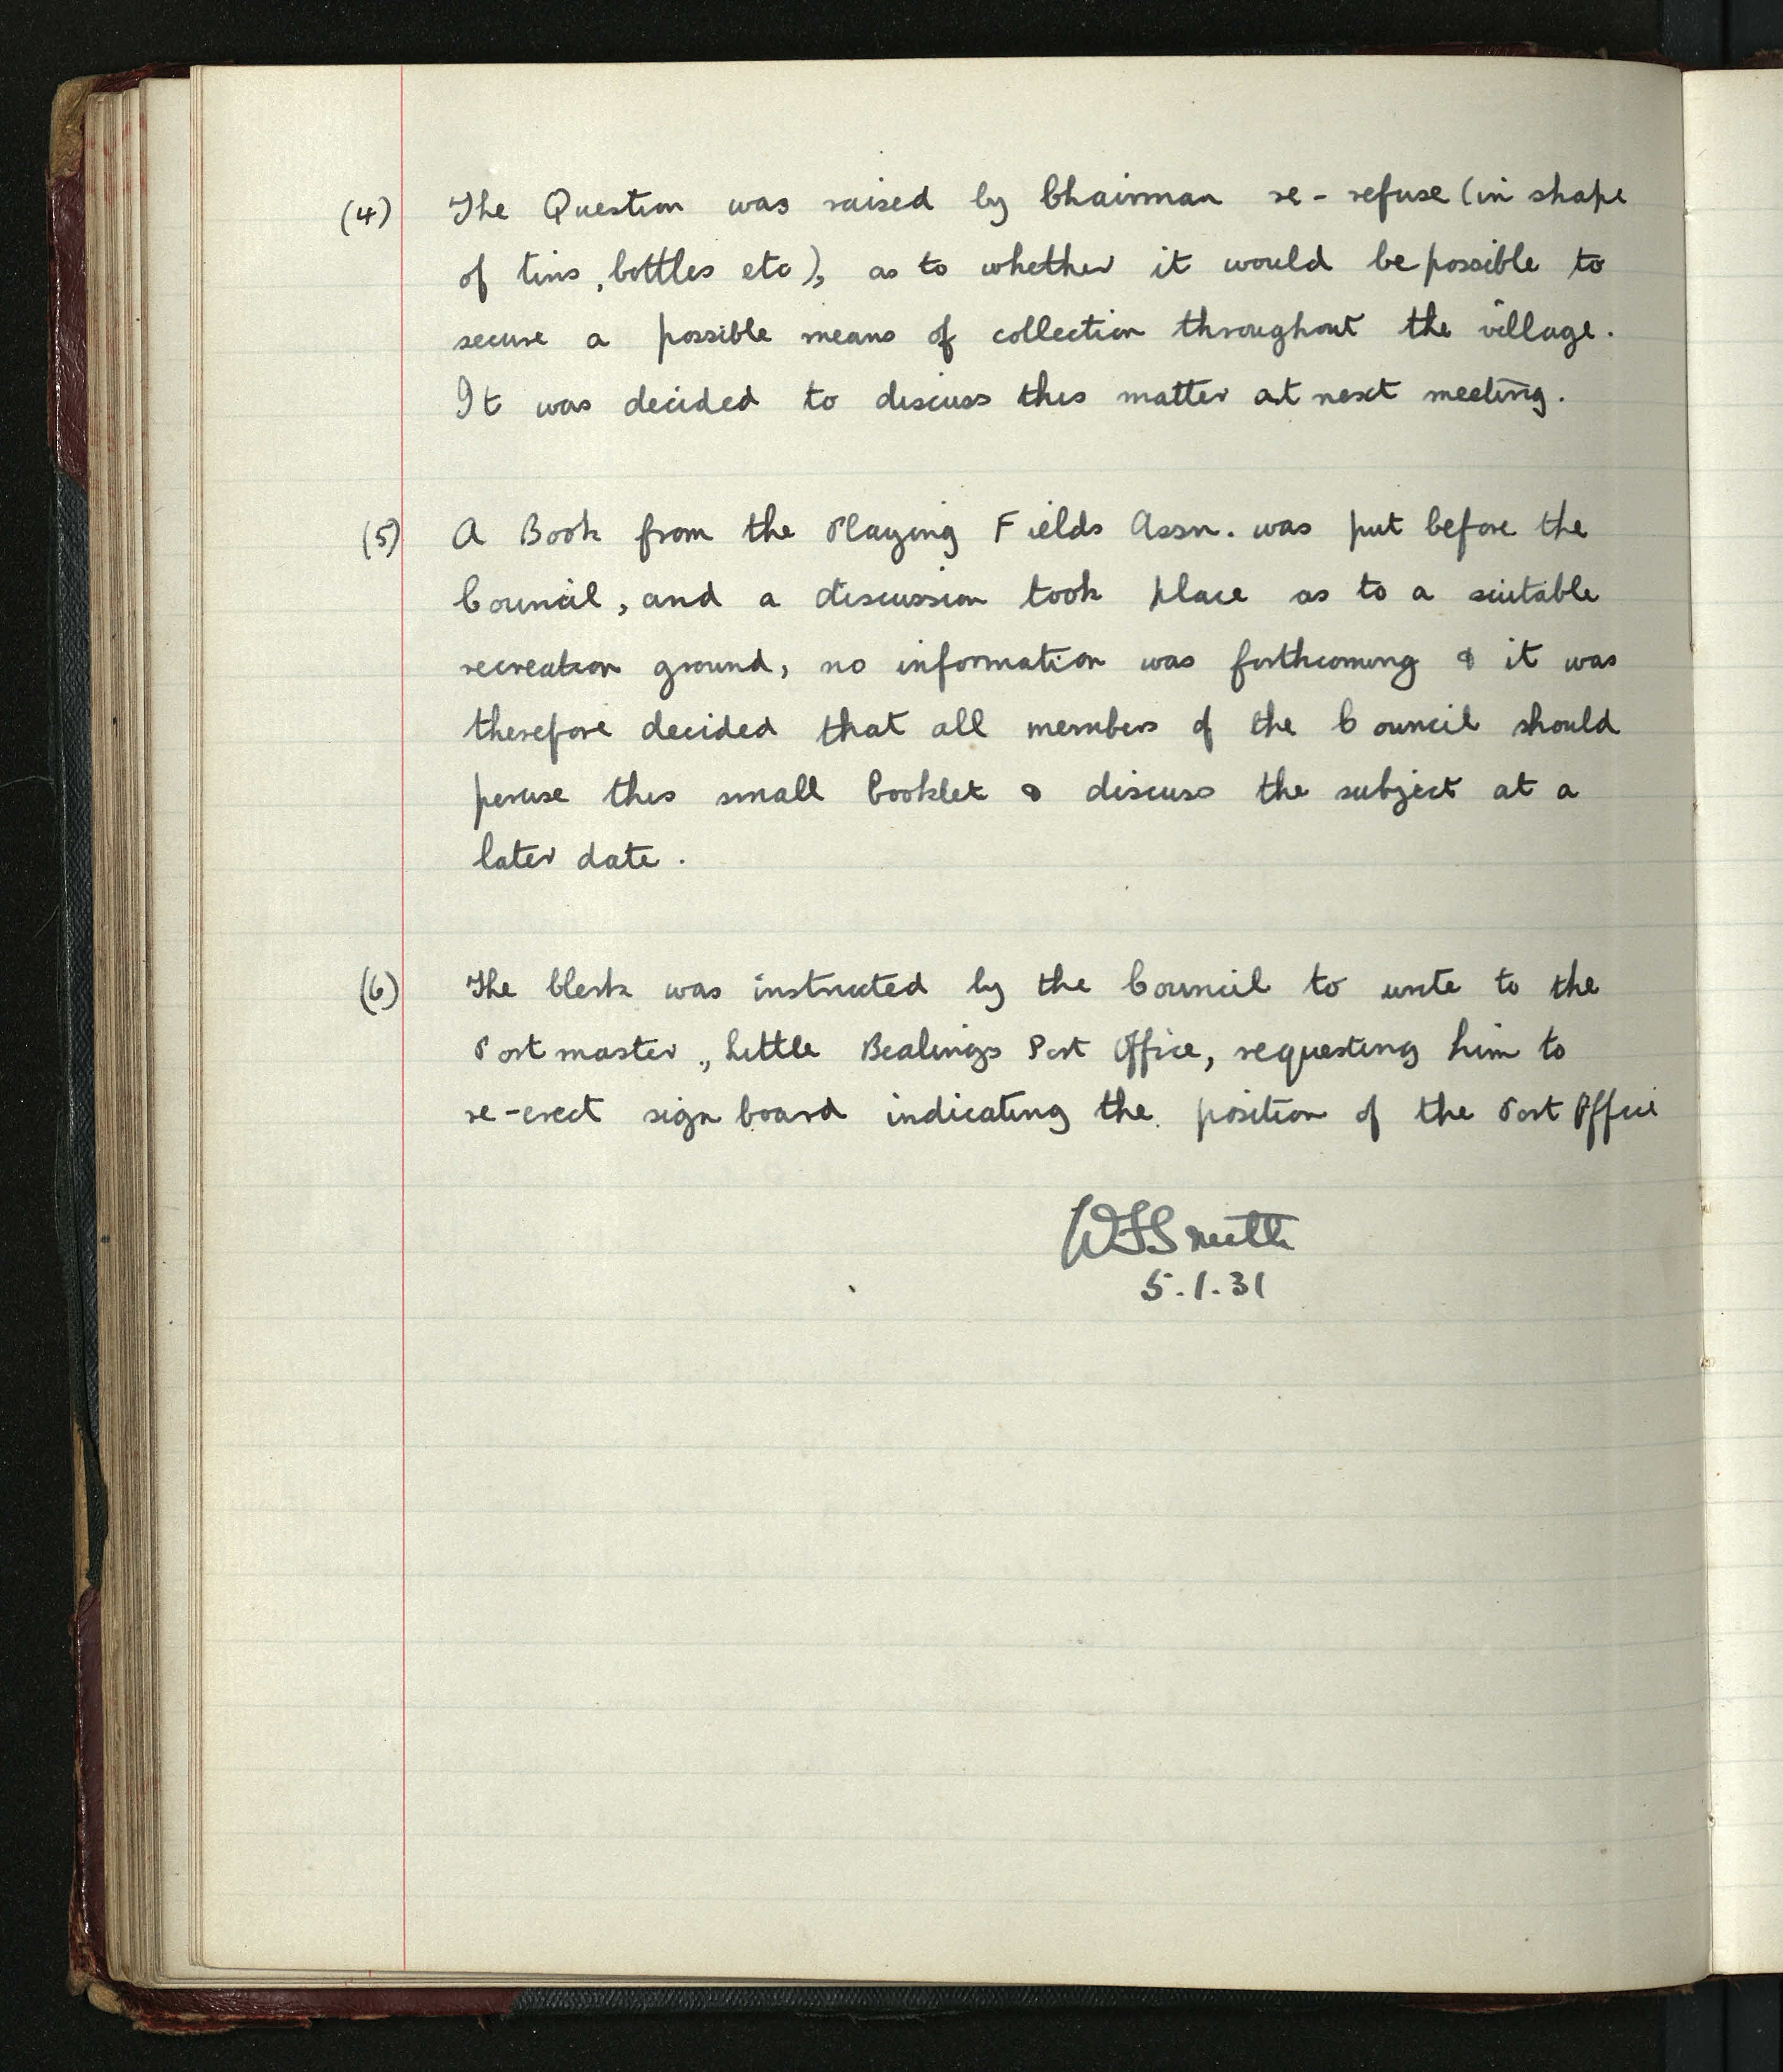 (4) The Question was raised by Chairman re - refuse (in shape
of tins, bottles etc), as to whether it would be possible to
secure a possible means of collection throughout the village.
It was decided to discuss this matter at next meeting.
(5) A Book from the Playing Fields Assn. was put before the
Council, and a discussion took place as to a suitable
recreation ground, no information was forthcoming & it was
therefore decided that all members of the Council should
peruse this small booklet & discuss the subject at a
later date.
(6) The Clerk was instructed by the Council to write to the
Postmaster, Little Bealings Post Office, requesting him to
re-erect sign board indicating the position of the Post Office
WFSmith
5.1.31